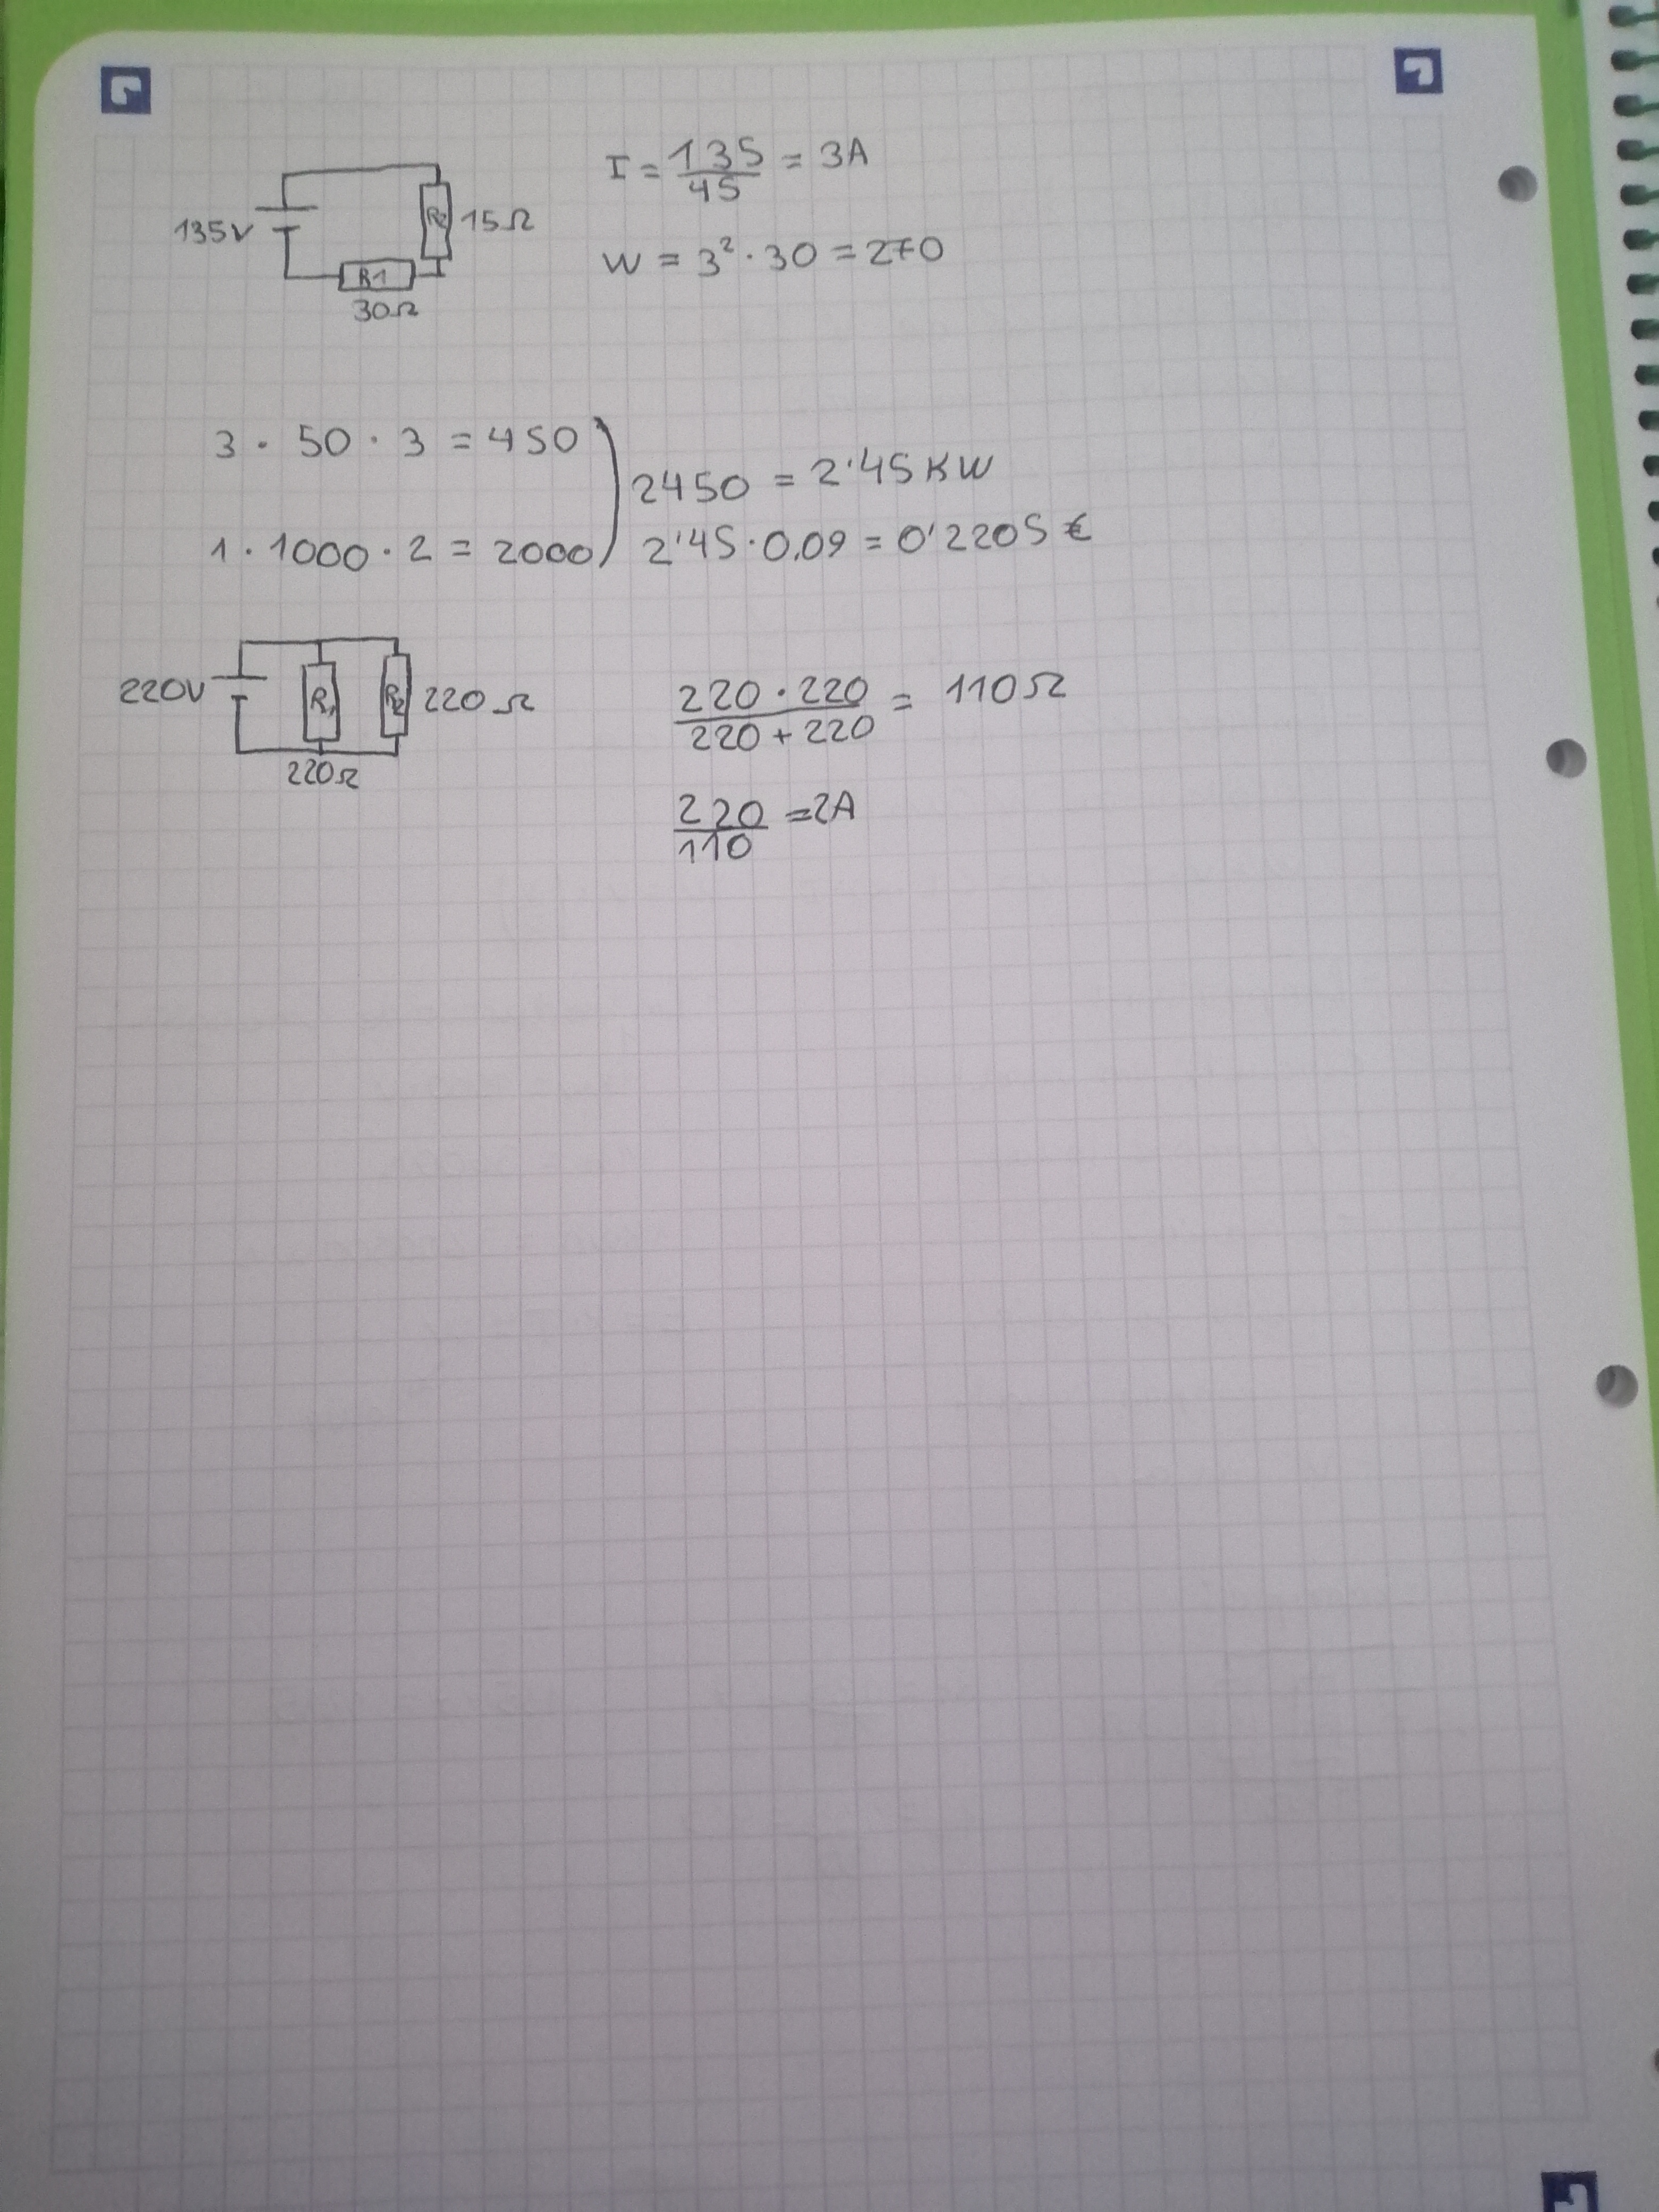 135V
R2 15Ω
R1
30Ω
I = 135/45 = 3A
W = 3² · 30 = 270
3 · 50 · 3 = 450
1 · 1000 · 2 = 2000
2450 = 2'45 KW
2'45 · 0,09 = 0'2205 €
220V R1 R2 220Ω
220Ω
220 · 220 / 220 + 220 = 110Ω
220/110 = 2A